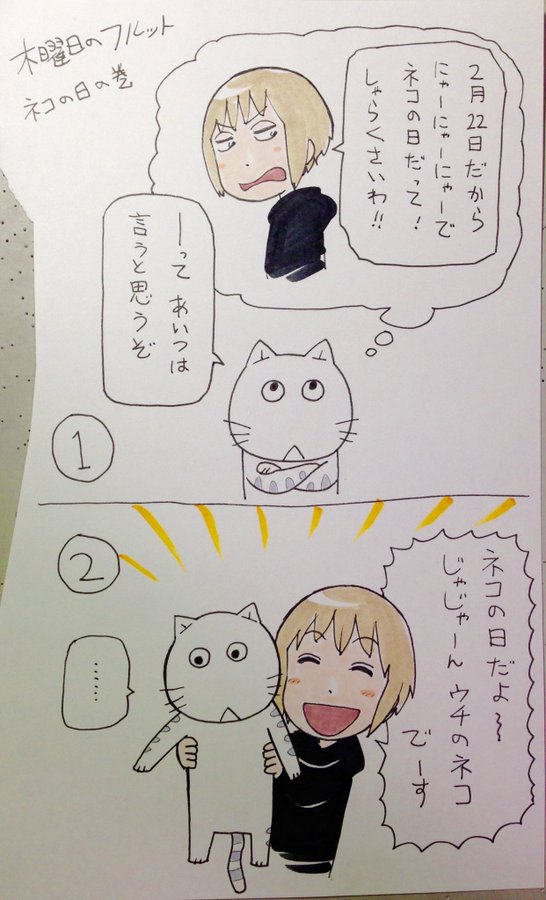 木曜日のフルット
ネコの日の巻
2月22日だから
にゃーにゃーにゃーで
ネコの日だって!
しゃらくさいわ!!
ーって あいつは
言うと思うぞ
1
2
ネコの日だよ〜
じゃじゃーん ウチのネコ
でーす
……